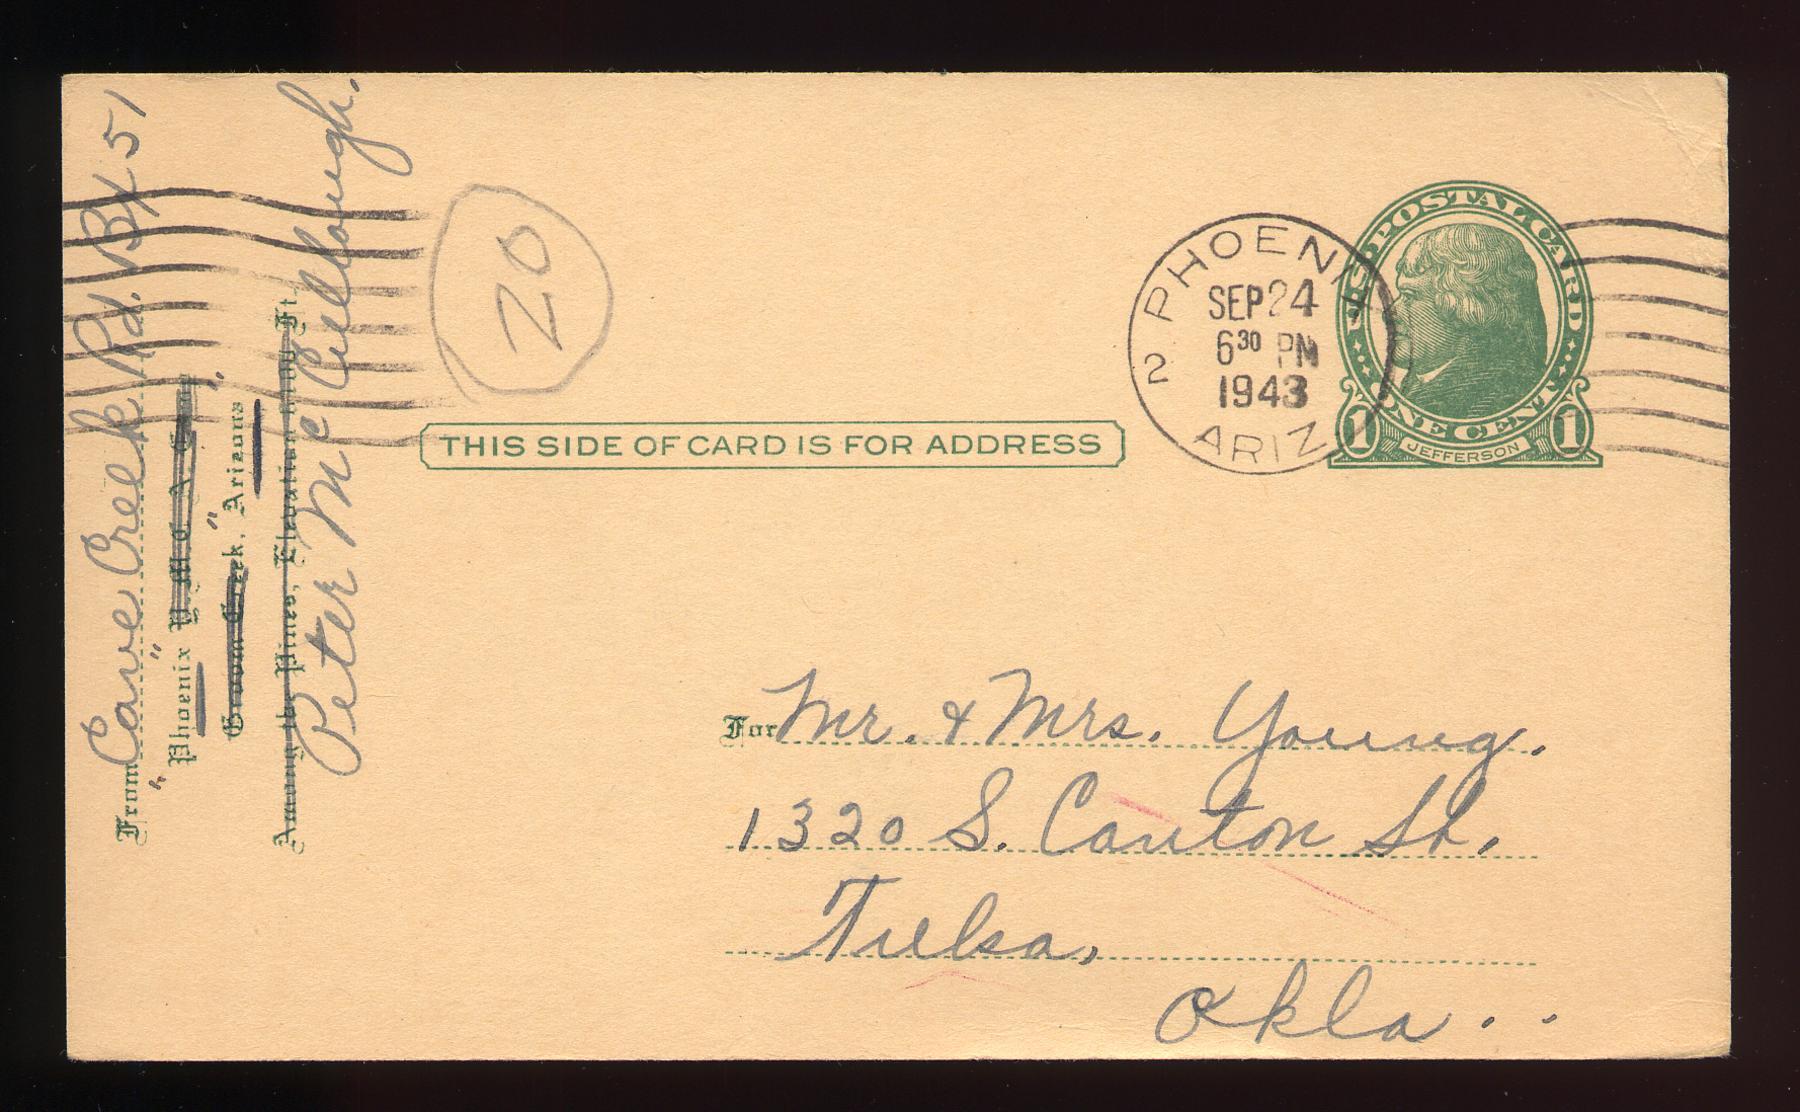 From "Cave Creek Rd. Bx 51
Phoenix Y.M.C.A. Camp
Groom Creek, Arizona
Among the Pines, Elevation Ft.
Peter McCullough.
20
2 PHOENIX ARIZ
SEP 24
6 30 PM
1943
U.S. POSTAL CARD
ONE CENT
1 JEFFERSON 1
THIS SIDE OF CARD IS FOR ADDRESS
For Mr. & Mrs. Young.
1320 S. Canton St.
Tulsa,
Okla..